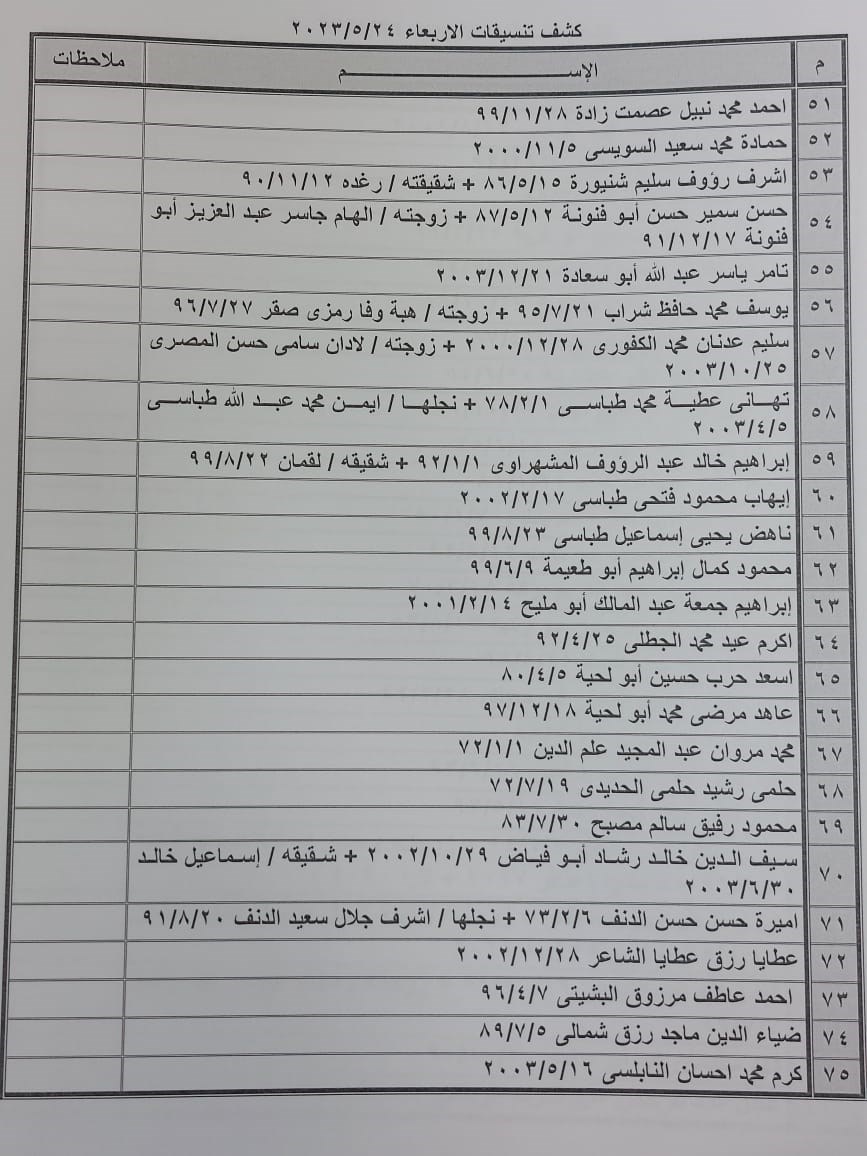 كشف تنسيقات الاربعاء ٢٠٢٣/٥/٢٤
م الإســـــــــم ملاحظات
٥١ احمد محمد نبيل عصمت زادة ٩٩/١١/٢٨
٥٢ حمادة محمد سعيد السويسى ٢٠٠٠/١١/٥
٥٣ اشرف رؤوف سليم شنيورة ٨٦/٥/١٥ + شقيقته / رغده ٩٠/١١/١٢
٥٤ حسن سمير حسن أبو فنونة ٨٧/٥/١٢ + زوجته / الهام جاسر عبد العزيز أبو
فنونة ٩١/١٢/١٧
٥٥ تامر ياسر عبد الله أبو سعادة ٢٠٠٣/١٢/٢١
٥٦ يوسف محمد حافظ شراب ٩٥/٧/٢١ + زوجته / هبة وفا رمزى صقر ٩٦/٧/٢٧
٥٧ سليم عدنان محمد الكفورى ٢٠٠٠/١٢/٢٨ + زوجته / لادان سامى حسن المصرى
٢٠٠٣/١٠/٢٥
٥٨ تهانى عطية محمد طباسى ٧٨/٢/١ + نجلها / ايمن محمد عبد الله طباسى
٢٠٠٣/٤/٥
٥٩ إبراهيم خالد عبد الرؤوف المشهراوى ٩٢/١/١ + شقيقه / لقمان ٩٩/٨/٢٢
٦٠ إيهاب محمود فتحى طباسى ٢٠٠٢/٢/١٧
٦١ ناهض يحيى إسماعيل طباسى ٩٩/٨/٢٣
٦٢ محمود كمال إبراهيم أبو طعيمة ٩٩/٦/٩
٦٣ إبراهيم جمعة عبد المالك أبو مليح ٢٠٠١/٢/١٤
٦٤ اكرم عيد محمد الجطلى ٩٢/٤/٢٥
٦٥ اسعد حرب حسين أبو لحية ٨٠/٤/٥
٦٦ عاهد مرضى محمد أبو لحية ٩٧/١٢/١٨
٦٧ محمد مروان عبد المجيد علم الدين ٧٢/١/١
٦٨ حلمى رشيد حلمى الحديدى ٧٢/٧/١٩
٦٩ محمود رفيق سالم مصبح ٨٣/٧/٣٠
٧٠ سيف الدين خالد رشاد أبو فياض ٢٠٠٢/١٠/٢٩ + شقيقه / إسماعيل خالد
٢٠٠٣/٦/٣٠
٧١ اميرة حسن حسن الدنف ٧٣/٢/٦ + نجلها / اشرف جلال سعيد الدنف ٩١/٨/٢٠
٧٢ عطايا رزق عطايا الشاعر ٢٠٠٢/١٢/٢٨
٧٣ احمد عاطف مرزوق البشيتى ٩٦/٤/٧
٧٤ ضياء الدين ماجد رزق شمالى ٨٩/٧/٥
٧٥ كرم محمد احسان النابلسى ٢٠٠٣/٥/١٦